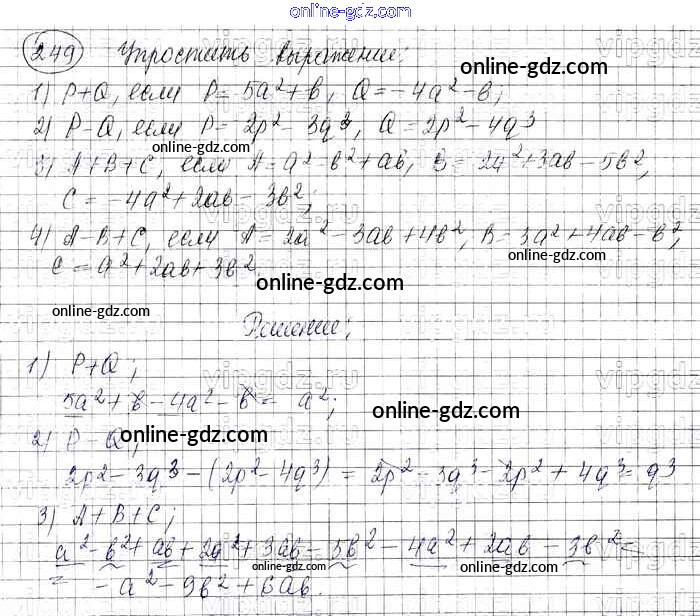 online-gdz.com
249 Упростить выражение:
online-gdz.com
1) P+Q, если P = 5a²+b, Q = -4a²-b;
2) P-Q, если P = 2p²-3q³, Q = 2p²-4q³
online-gdz.com
3) A+B+C, если A = a²-b²+ab, B = 2a²+3ab-5b²,
C = -4a²+2ab-3b²;
online-gdz.com
4) A-B+C, если A = 2a²-3ab+4b², B = 3a²+4ab-b²,
C = a²+2ab+3b².
online-gdz.com
online-gdz.com
Решение;
1) P+Q;
vipgdz.ru
5a²+b-4a²-b = a²;
online-gdz.com
2) P-Q;
online-gdz.com
2p²-3q³-(2p²-4q³) = 2p²-3q³-2p²+4q³ = q³
3) A+B+C;
online-gdz.com
a²-b²+ab+2a²+3ab-5b²-4a²+2ab-3b² =
= -a²-9b²+6ab.
online-gdz.com